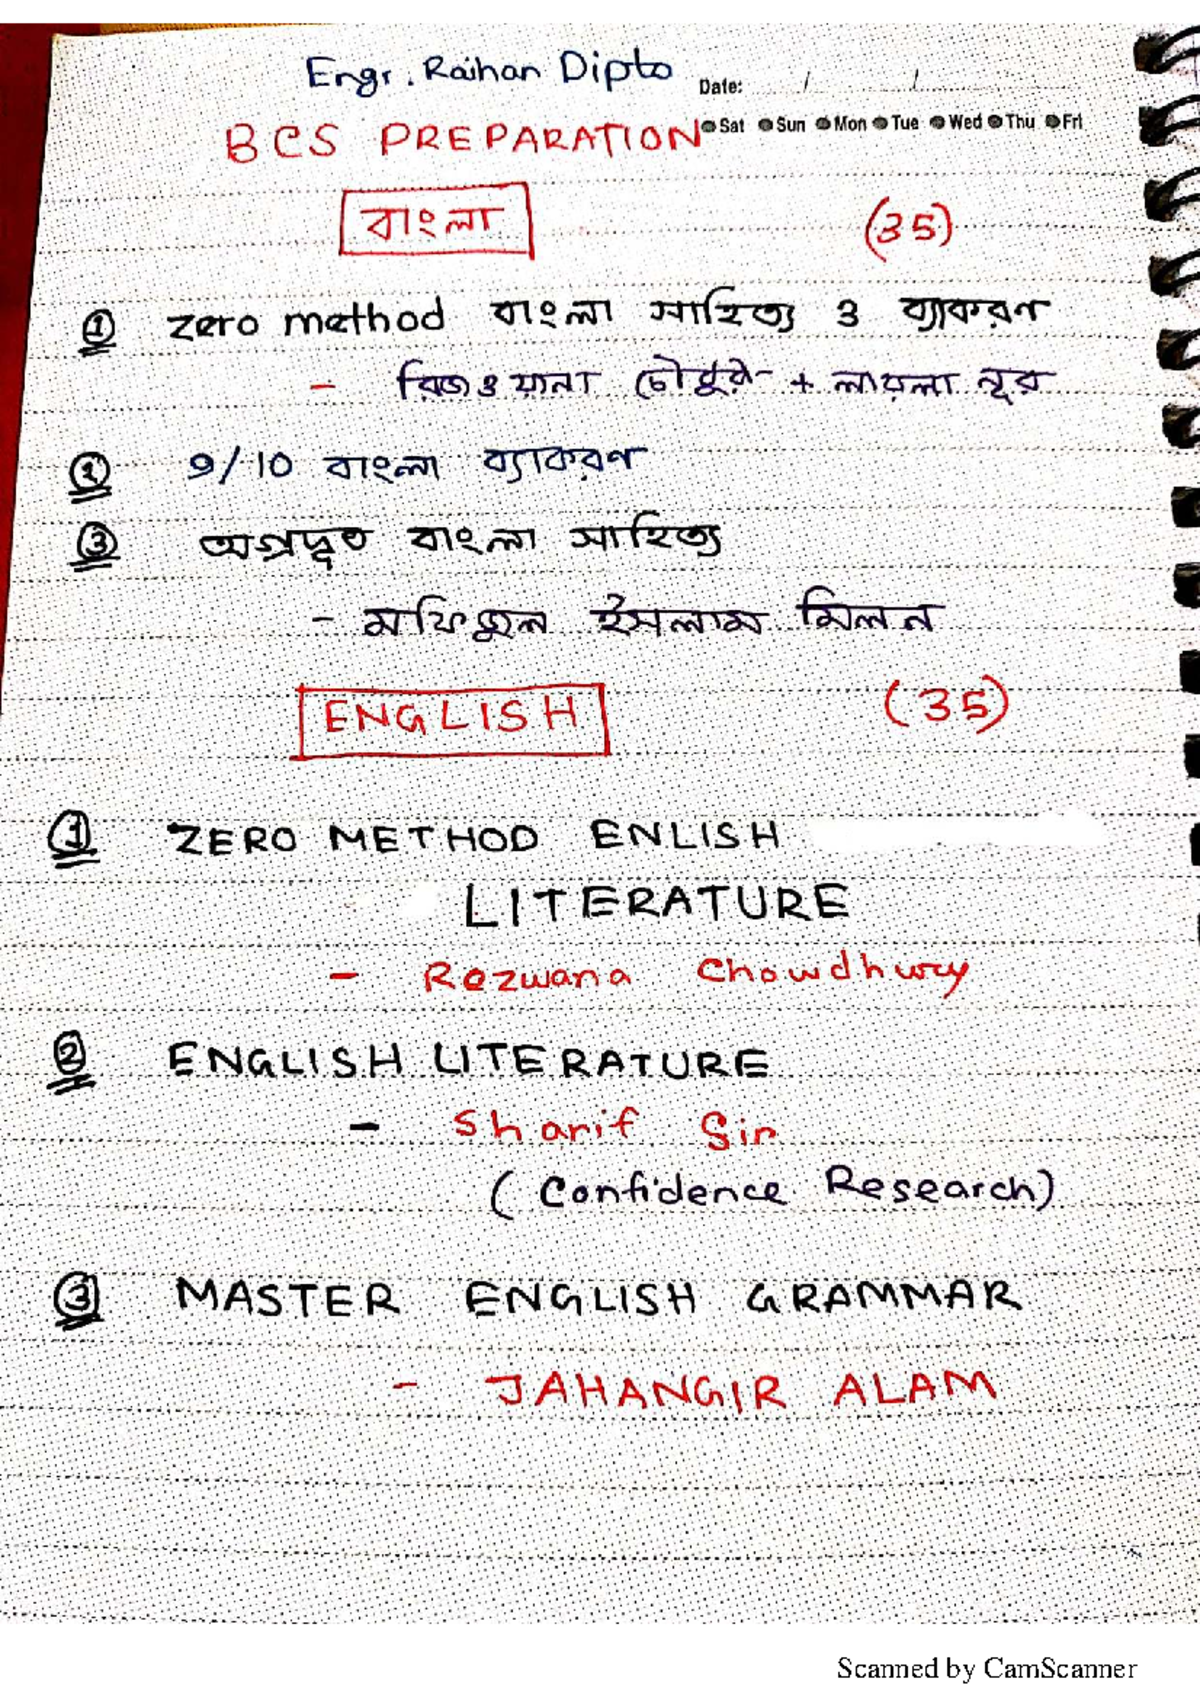 Engr. Raihan Dipto
Date: / /
BCS PREPARATION
Sat Sun Mon Tue Wed Thu Fri
বাংলা (35)
① zero method বাংলা সাহিত্য ও ব্যাকরণ
- রিজওয়ানা চৌধুরী + লায়লা নূর
② 9/10 বাংলা ব্যাকরণ
③ অগ্রদূত বাংলা সাহিত্য
- মফিজুল ইসলাম মিলন
ENGLISH (35)
① ZERO METHOD ENLISH
LITERATURE
- Rezwana Chowdhury
② ENGLISH LITERATURE
- Sharif Sir
(Confidence Research)
③ MASTER ENGLISH GRAMMAR
- JAHANGIR ALAM
Scanned by CamScanner